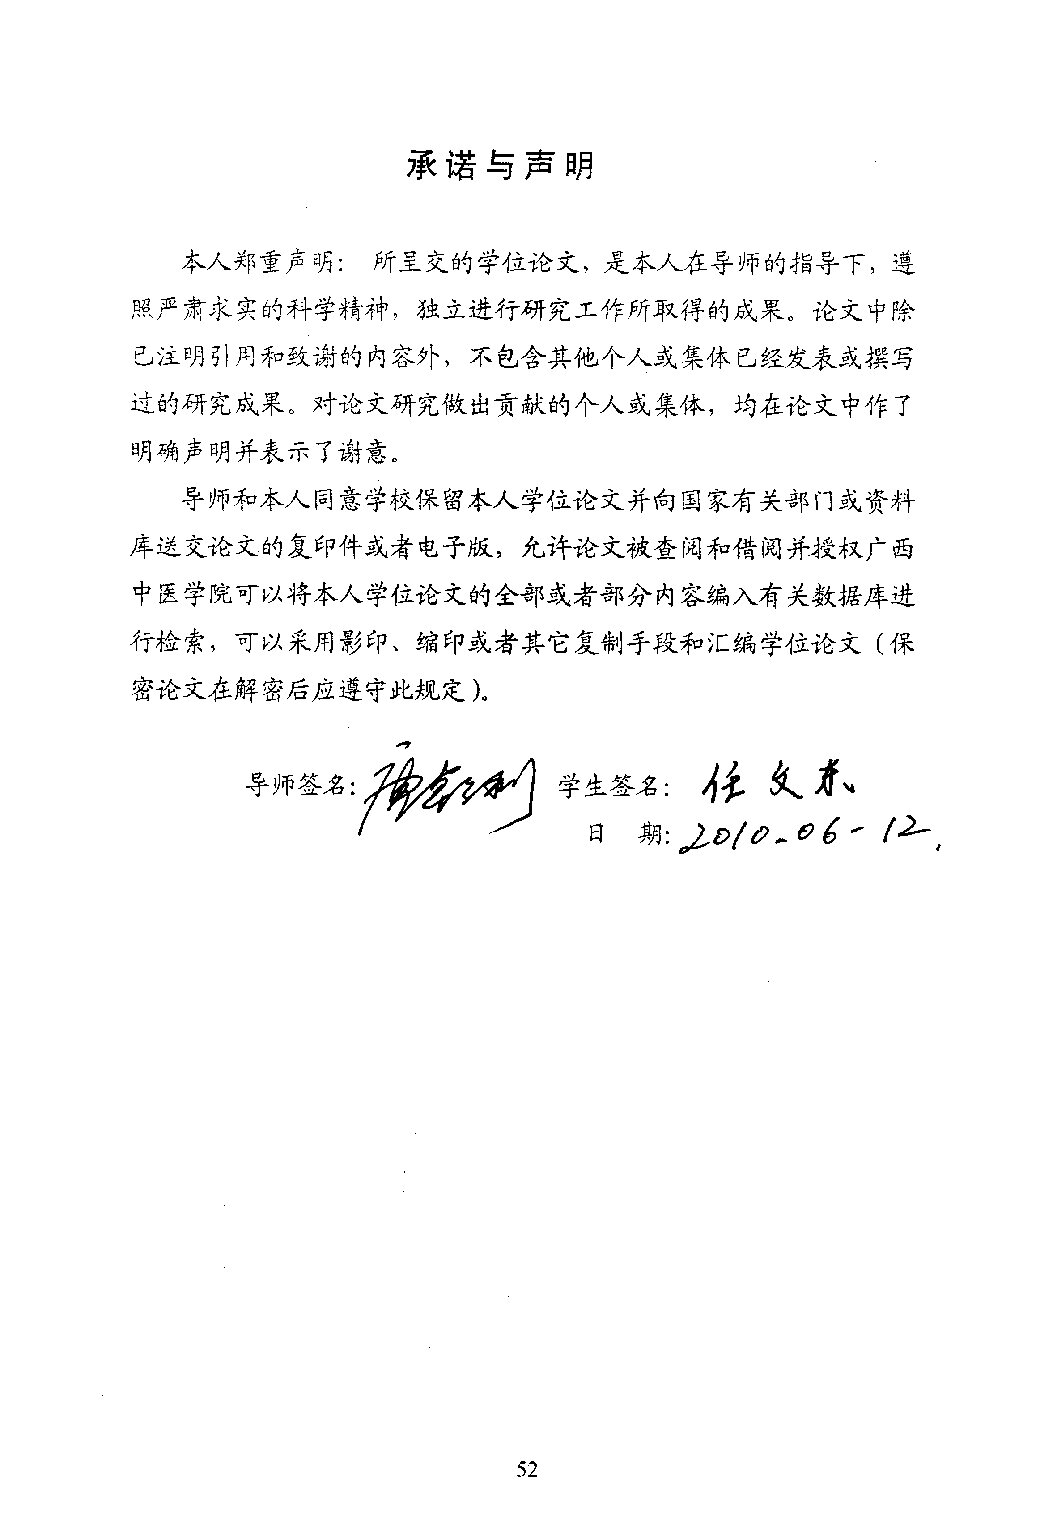 承诺与声明
本人郑重声明： 所呈交的学位论文，是本人在导师的指导下，遵
照严肃求实的科学精神，独立进行研究工作所取得的成果。论文中除
已注明引用和致谢的内容外，不包含其他个人或集体已经发表或撰写
过的研究成果。对论文研究做出贡献的个人或集体，均在论文中作了
明确声明并表示了谢意。
导师和本人同意学校保留本人学位论文并向国家有关部门或资料
库送交论文的复印件或者电子版，允许论文被查阅和借阅并授权广西
中医学院可以将本人学位论文的全部或者部分内容编入有关数据库进
行检索，可以采用影印、缩印或者其它复制手段和汇编学位论文（保
密论文在解密后应遵守此规定）。
导师签名： 学生签名： 任文东
日 期：2010-06-12
52